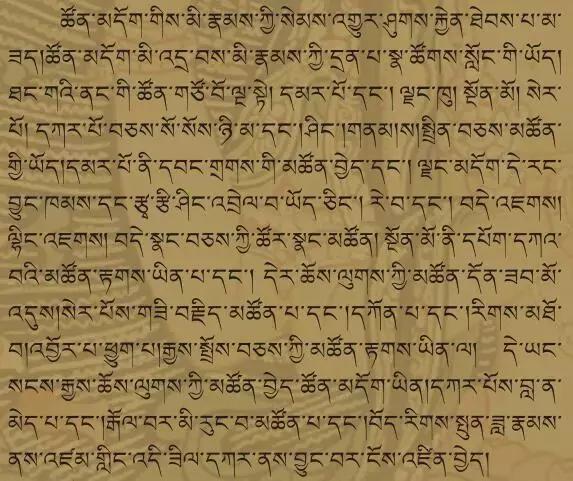 ཚོན་མདོག་གིས་མི་རྣམས་ཀྱི་སེམས་འགྱུར་ཤུགས་རྐྱེན་ཐེབས་པ་མ་
ཟད།ཚོན་མདོག་མི་འདྲ་བས་མི་རྣམས་ཀྱི་དྲན་པ་སྣ་ཚོགས་སློང་གི་ཡོད།
ཐང་གའི་ནང་གི་ཚོན་གཙོ་བོ་ལྔ་སྟེ། དམར་པོ་དང་། ལྗང་ཁུ། སྔོན་མོ། སེར་
པོ། དཀར་པོ་བཅས་སོ་སོས་ཉི་མ་དང་།ཤིང་།གནམ།ས།སྤྲིན་བཅས་མཚོན་
གྱི་ཡོད།དམར་པོ་ནི་དབང་གྲགས་གི་མཚོན་བྱེད་དང་། ལྗང་མདོག་དེ་རང་
བྱུང་ཁམས་དང་རྩྭ་རྩི་ཤིང་འབྲེལ་བ་ཡོད་ཅིང་། རེ་བ་དང་། བདེ་འཇགས།
ལྷིང་འཇགས། བདེ་སྣང་བཅས་ཀྱི་ཚོར་སྣང་མཚོན། སྔོན་མོ་ནི་དཔོག་དཀའ་
བའི་མཚོན་རྟགས་ཡིན་པ་དང་། དེར་ཆོས་ལུགས་ཀྱི་མཚོན་དོན་ཟབ་མོ་
འདུས།སེར་པོས་གཟི་བརྗིད་མཚོན་པ་དང་།དཀོན་པ་དང་།རིགས་མཐོ་
བ།འབྱོར་པ་ཕྱུག་པ།རྒྱས་སྤྲོས་བཅས་ཀྱི་མཚོན་རྟགས་ཡིན་ལ། དེ་ཡང་
སངས་རྒྱས་ཆོས་ལུགས་ཀྱི་མཚོན་བྱེད་ཚོན་མདོག་ཡིན།དཀར་པོས་བླ་ན་
མེད་པ་དང་།རྒོལ་བར་མི་རུང་བ་མཚོན་པ་དང་།བོད་རིགས་སྤུན་ཟླ་རྣམས་
ནས་འཛམ་གླིང་འདི་ཟིལ་དཀར་ནས་བྱུང་བར་ངོས་འཛིན་བྱེད།